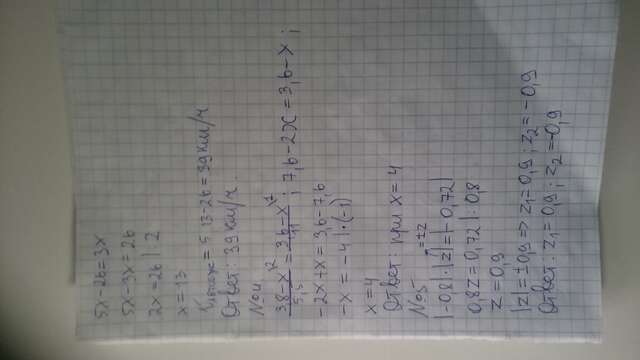 5x-26=3x
5x-3x=26
2x=26 | :2
x=13
= 5·13-26=39 км/ч
Ответ: 39 км/ч.
№4
3,8-x\2 / 5,5 = 3,6-x\1 / 11 ; 7,6-2x=3,6-x;
-2x+x=3,6-7,6
-x=-4 |·(-1)
x=4
Ответ: при x=4
№5
|-0,8|·|z|=|-0,72|
0,8z=0,72 |:0,8
z=0,9
|z|=±0,9 => z₁=0,9; z₂=-0,9
Ответ: z₁=0,9; z₂=-0,9